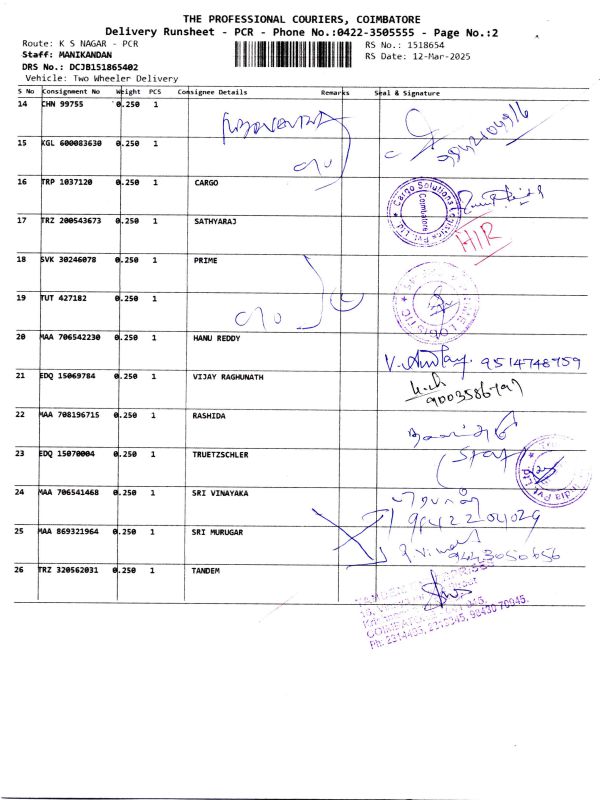 THE PROFESSIONAL COURIERS, COIMBATORE
Delivery Runsheet - PCR - Phone No.:0422-3505555 - Page No.:2
Route: K S NAGAR - PCR
RS No.: 1518654
Staff: MANIKANDAN
RS Date: 12-Mar-2025
DRS No.: DCJB151865402
Vehicle: Two Wheeler Delivery
S No Consignment No Weight PCS Consignee Details Remarks Seal & Signature
14 CHN 99755 0.250 1
15 KGL 600083630 0.250 1
16 TRP 1037120 0.250 1 CARGO
Cargo Solutions Coimbatore
17 TRZ 200543673 0.250 1 SATHYARAJ
18 SVK 30246078 0.250 1 PRIME
19 TUT 427182 0.250 1
20 MAA 706542230 0.250 1 HANU REDDY
9514748959
21 EDQ 15069784 0.250 1 VIJAY RAGHUNATH
22 MAA 708196715 0.250 1 RASHIDA
23 EDQ 15070004 0.250 1 TRUETZSCHLER
Staff
India Pvt Ltd
24 MAA 706541468 0.250 1 SRI VINAYAKA
25 MAA 869321964 0.250 1 SRI MURUGAR
9443050656
26 TRZ 320562031 0.250 1 TANDEM